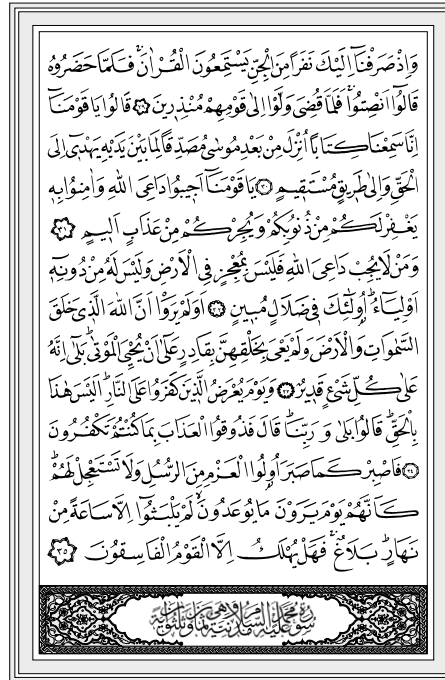 وَاِذْ صَرَفْنَٓا اِلَيْكَ نَفَرًا مِنَ الْجِنِّ يَسْتَمِعُونَ الْقُرْاٰنَۚ فَلَمَّا حَضَرُوهُ
قَالُٓوا اَنْصِتُواۚ فَلَمَّا قُضِيَ وَلَّوْا اِلٰى قَوْمِهِمْ مُنْذِر۪ينَ ﴿٢٩﴾ قَالُوا يَا قَوْمَنَٓا
اِنَّا سَمِعْنَا كِتَابًا اُنْزِلَ مِنْ بَعْدِ مُوسٰى مُصَدِّقًا لِمَا بَيْنَ يَدَيْهِ يَهْد۪ٓي اِلَى
الْحَقِّ وَاِلٰى طَر۪يقٍ مُسْتَق۪يمٍ ﴿٣٠﴾ يَا قَوْمَنَٓا اَج۪يبُوا دَاعِيَ اللّٰهِ وَاٰمِنُوا بِه۪
يَغْفِرْ لَكُمْ مِنْ ذُنُوبِكُمْ وَيُجِرْكُمْ مِنْ عَذَابٍ اَل۪يمٍ ﴿٣١﴾
وَمَنْ لَا يُجِبْ دَاعِيَ اللّٰهِ فَلَيْسَ بِمُعْجِزٍ فِي الْاَرْضِ وَلَيْسَ لَهُ مِنْ دُونِه۪ٓ
اَوْلِيَٓاءُۜ اُو۬لٰٓئِكَ ف۪ي ضَلَالٍ مُب۪ينٍ ﴿٣٢﴾ اَوَلَمْ يَرَوْا اَنَّ اللّٰهَ الَّذ۪ي خَلَقَ
السَّمٰوَاتِ وَالْاَرْضَ وَلَمْ يَعْيَ بِخَلْقِهِنَّ بِقَادِرٍ عَلٰٓى اَنْ يُحْيِيَ الْمَوْتٰىۜ بَلٰٓى اِنَّهُ
عَلٰى كُلِّ شَيْءٍ قَد۪يرٌ ﴿٣٣﴾ وَيَوْمَ يُعْرَضُ الَّذ۪ينَ كَفَرُوا عَلَى النَّارِۜ اَلَيْسَ هٰذَا
بِالْحَقِّۜ قَالُوا بَلٰى وَرَبِّنَاۜ قَالَ فَذُوقُوا الْعَذَابَ بِمَا كُنْتُمْ تَكْفُرُونَ
﴿٣٤﴾ فَاصْبِرْ كَمَا صَبَرَ اُو۬لُوا الْعَزْمِ مِنَ الرُّسُلِ وَلَا تَسْتَعْجِلْ لَهُمْۜ
كَاَنَّهُمْ يَوْمَ يَرَوْنَ مَا يُوعَدُونَۙ لَمْ يَلْبَثُٓوا اِلَّا سَاعَةً مِنْ
نَهَارٍۜ بَلَاغٌۚ فَهَلْ يُهْلَكُ اِلَّا الْقَوْمُ الْفَاسِقُونَ ﴿٣٥﴾